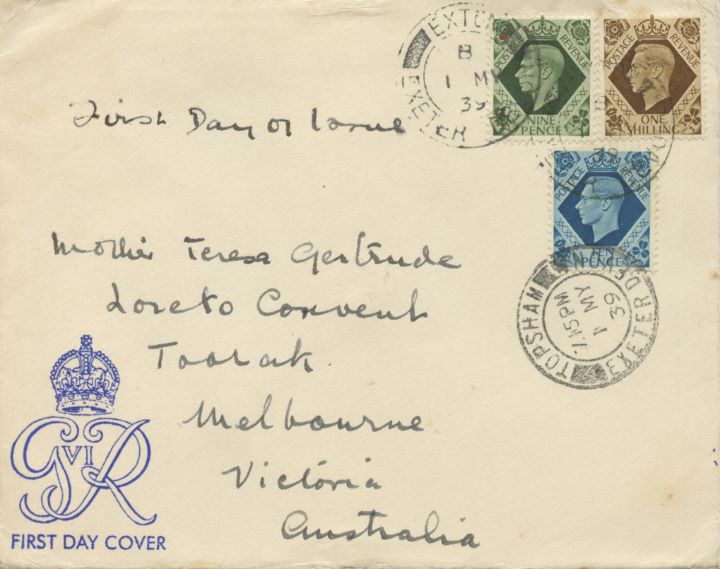 EXTU
B
1 MY
39
EXETER
POSTAGE REVENUE
NINE PENCE
POSTAGE REVENUE
ONE SHILLING
First Day of Issue
POSTAGE REVENUE
PENCE
TOPSHAM
7.15PM
1 MY
39
EXETER DE
Mother Teresa Gertrude
Loreto Convent
Toorak
Melbourne
Victoria
Australia
G VI R
FIRST DAY COVER